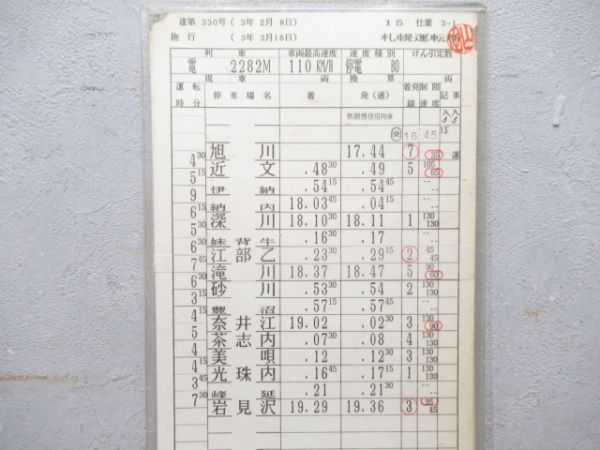 達第 330号 ( 3年 2月 8日) 15 仕業 3-1
施行 ( 3年 3月16日)
列車 車両最高速度 速度種別 けん引定数
電 2282M 110KM/H 停電 B0
現車 両 換算 両
運転時分 停車場名 着 発(通) 着発線 制限速度 記事
無線機使用列車
16:45
旭川 17.44 7 35
4 30
近文 .48 30 .49 5 105 85
5 15
伊納 .54 15 .54 45 -- --
9
納内 18.03 45 .04 15 -- --
6
深川 18.10 30 18.11 1 130 130
5 30
妹背牛 .16 30 .17 -- --
6
江部乙 .23 30 .29 15 2 45 45
7 45
滝川 18.37 18.47 5 90 60
6 30
砂川 .53 30 .54 2 130 130
3 15
豊沼 .57 15 .57 45 -- --
4 15
奈井江 19.02 .02 30 3 130 90
4 30
茶志内 .07 30 .08 4 130 130
4
美唄 .12 .12 30 3 130 130
4 15
光珠内 .16 45 .17 15 1 130 130
3 45
峰延 .21 .21 30 -- --
7 30
岩見沢 19.29 19.36 3 35 45